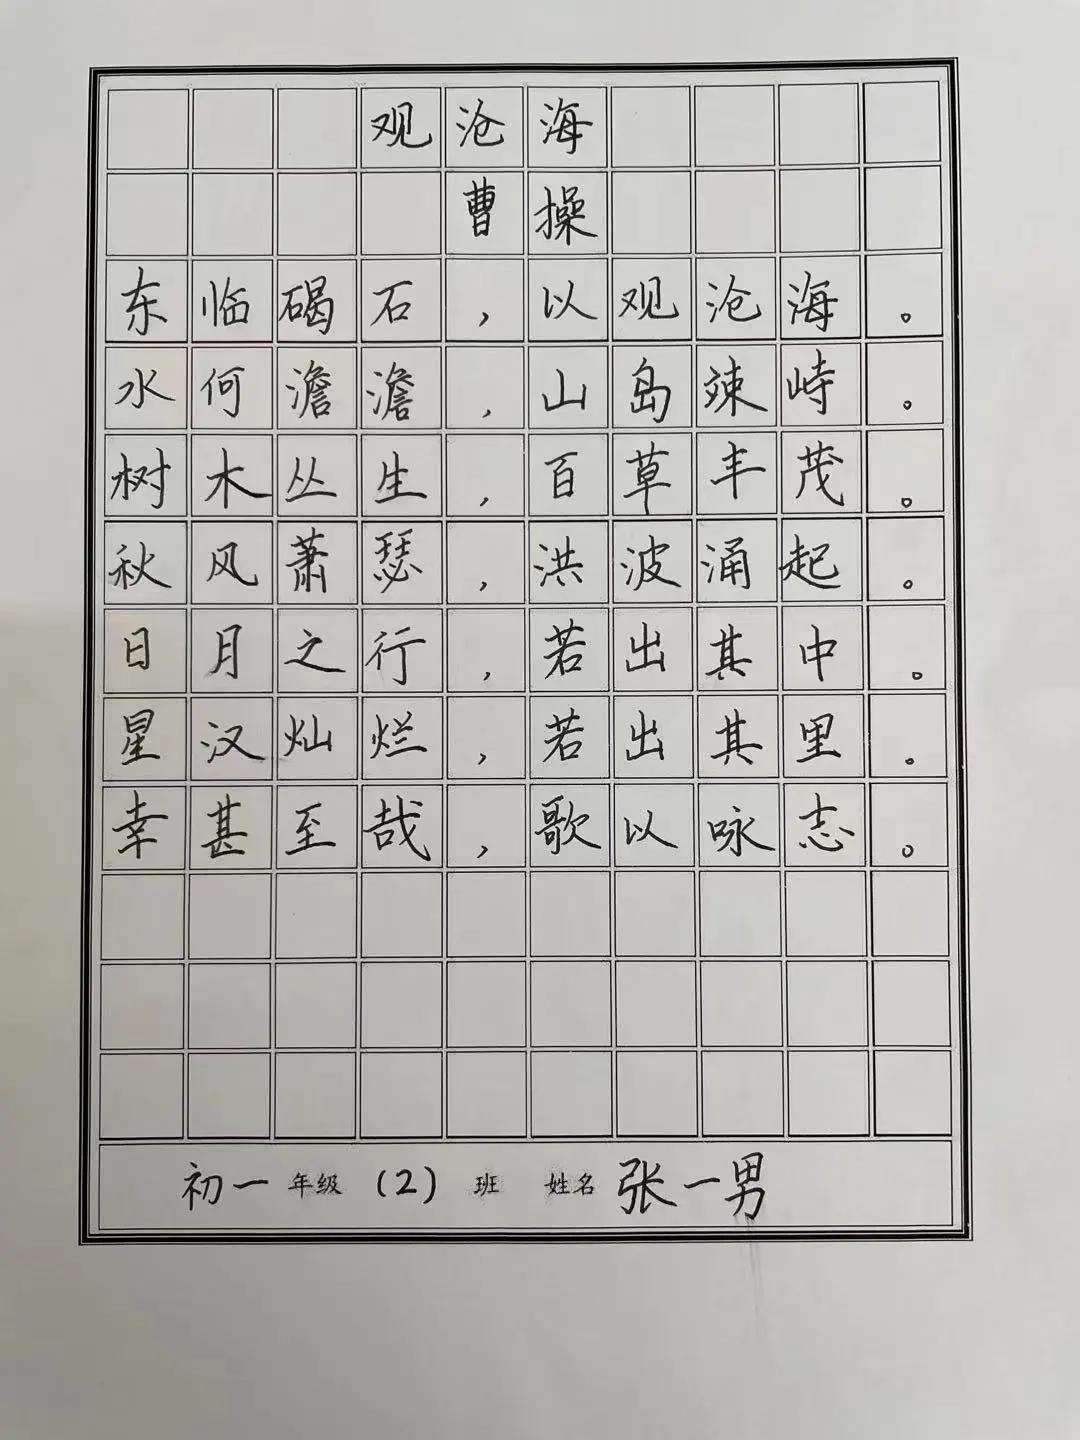 观沧海
曹操
东临碣石，以观沧海。
水何澹澹，山岛竦峙。
树木丛生，百草丰茂。
秋风萧瑟，洪波涌起。
日月之行，若出其中。
星汉灿烂，若出其里。
幸甚至哉，歌以咏志。
初一年级（2）班 姓名张一男